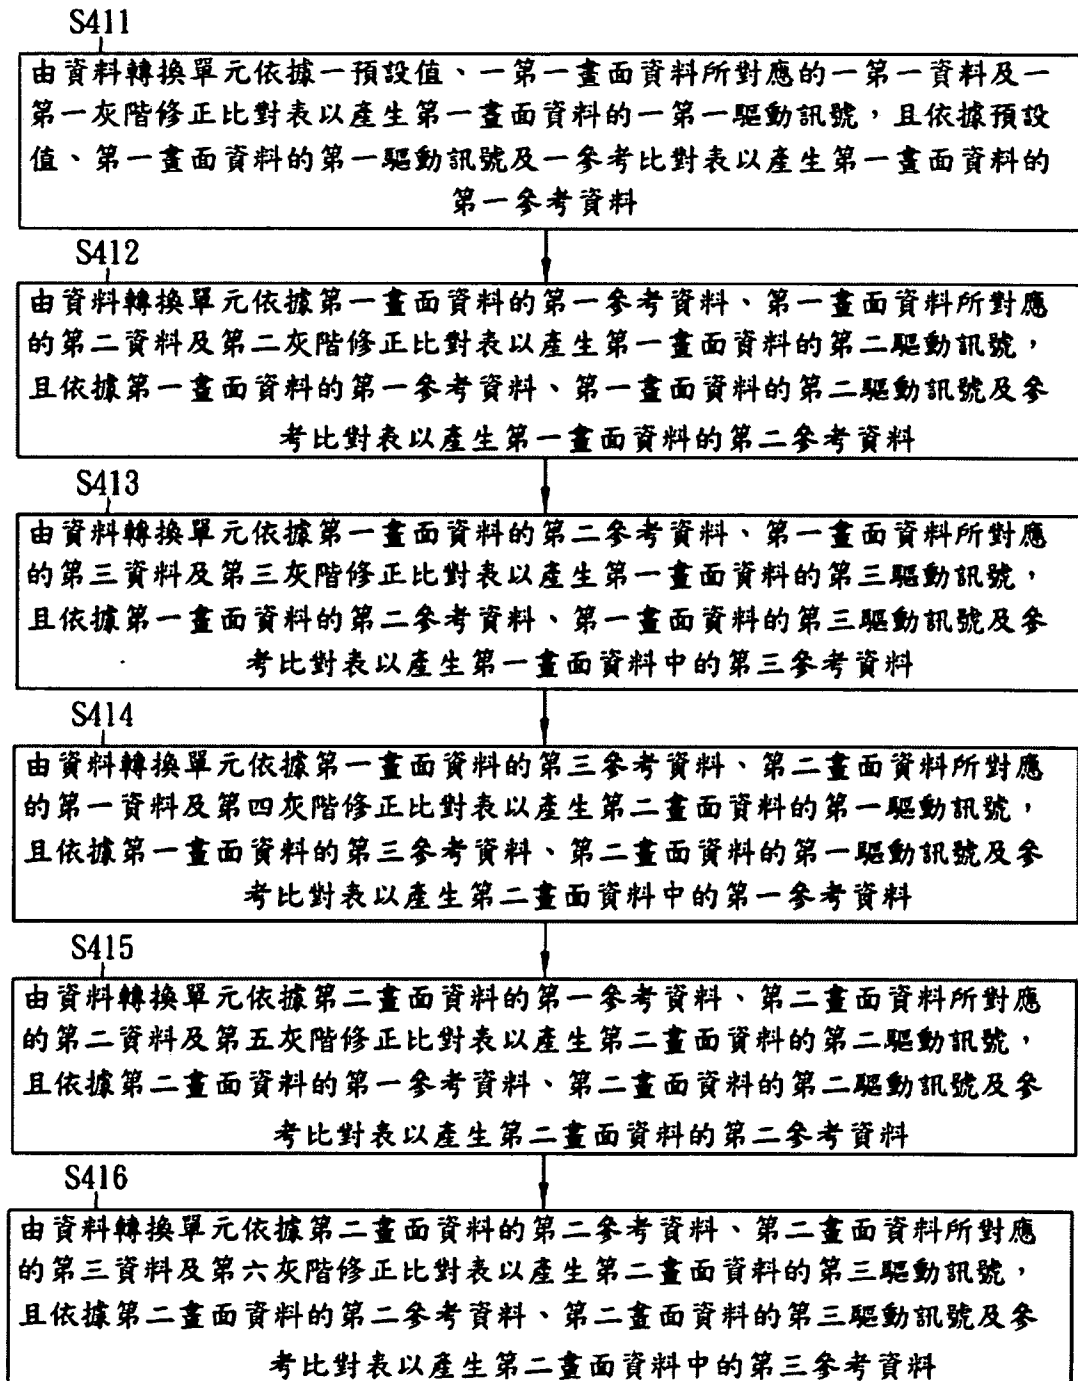 S411
由資料轉換單元依據一預設值、一第一畫面資料所對應的一第一資料及一
第一灰階修正比對表以產生第一畫面資料的一第一驅動訊號，且依據預設
值、第一畫面資料的第一驅動訊號及一參考比對表以產生第一畫面資料的
第一參考資料
S412
由資料轉換單元依據第一畫面資料的第一參考資料、第一畫面資料所對應
的第二資料及第二灰階修正比對表以產生第一畫面資料的第二驅動訊號，
且依據第一畫面資料的第一參考資料、第一畫面資料的第二驅動訊號及參
考比對表以產生第一畫面資料的第二參考資料
S413
由資料轉換單元依據第一畫面資料的第二參考資料、第一畫面資料所對應
的第三資料及第三灰階修正比對表以產生第一畫面資料的第三驅動訊號，
且依據第一畫面資料的第二參考資料、第一畫面資料的第三驅動訊號及參
考比對表以產生第一畫面資料中的第三參考資料
S414
由資料轉換單元依據第一畫面資料的第三參考資料、第二畫面資料所對應
的第一資料及第四灰階修正比對表以產生第二畫面資料的第一驅動訊號，
且依據第一畫面資料的第三參考資料、第二畫面資料的第一驅動訊號及參
考比對表以產生第二畫面資料中的第一參考資料
S415
由資料轉換單元依據第二畫面資料的第一參考資料、第二畫面資料所對應
的第二資料及第五灰階修正比對表以產生第二畫面資料的第二驅動訊號，
且依據第二畫面資料的第一參考資料、第二畫面資料的第二驅動訊號及參
考比對表以產生第二畫面資料的第二參考資料
S416
由資料轉換單元依據第二畫面資料的第二參考資料、第二畫面資料所對應
的第三資料及第六灰階修正比對表以產生第二畫面資料的第三驅動訊號，
且依據第二畫面資料的第二參考資料、第二畫面資料的第三驅動訊號及參
考比對表以產生第二畫面資料中的第三參考資料